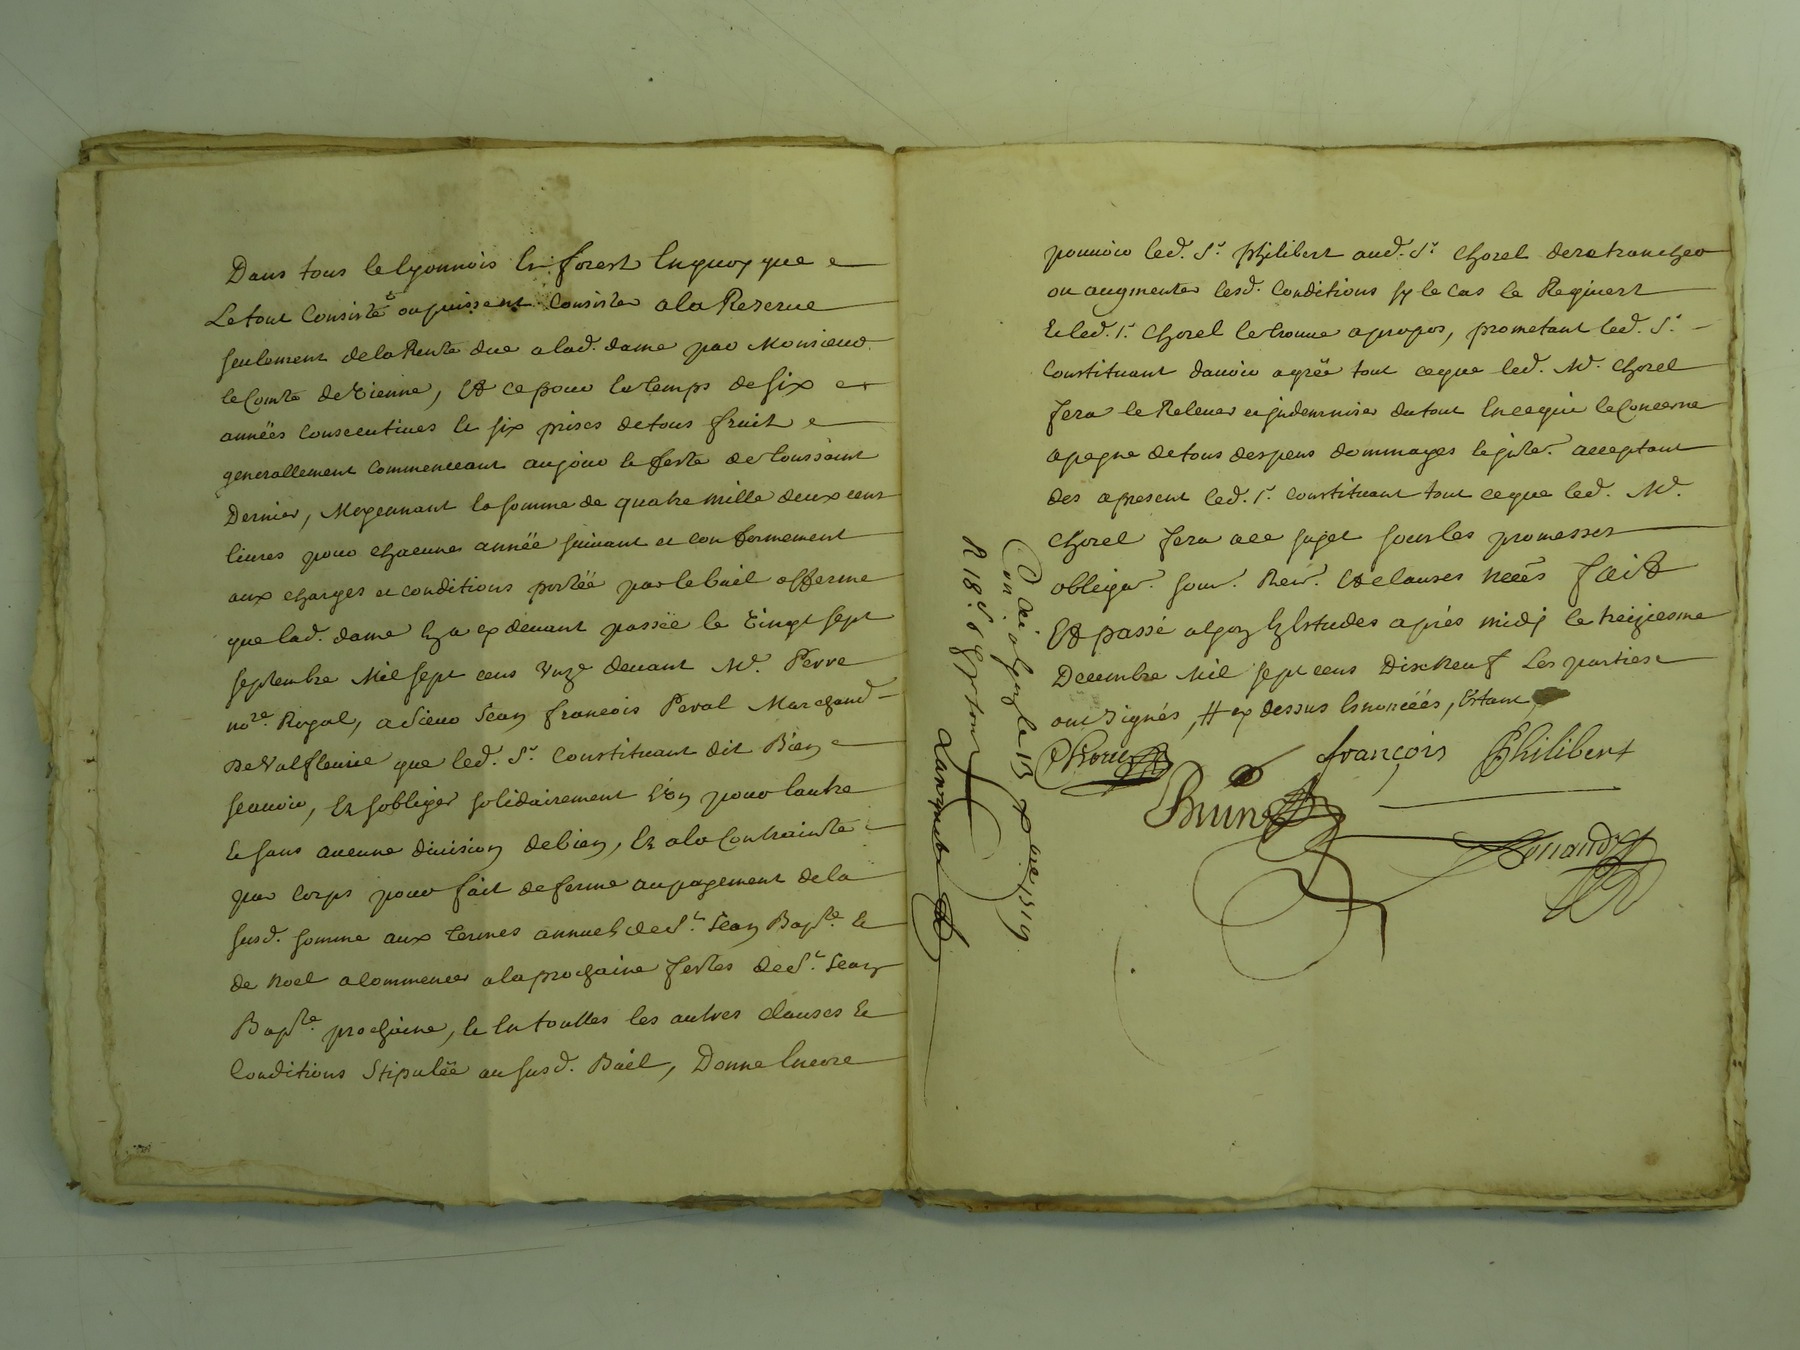 Dans tous le lyonnois et forest enquoy que
Letout Consiste ou puissent Consister ala Reserve
seulement dela Rente due alad. dame par Monsieur
le Comte de Vienne, Et ce pour le temps de six
années consecutives et six prises detous fruit
generallement commenceant aujour le feste de toussaint
Dernier, Moyennant la somme de quatre mille deux cent
livres pour chacunes année suivant et conformement
aux charges et conditions portéé par le bail afferme
que lad. dame en a cy devant passéé le Vingt sept
septembre Mil sept cens unze devant Me. Perre
nore. Royal, a Sieur Jean francois Peval Marchand
De Valfleurie que led. Sr. Constituant dit Bien
scavoir, Et sobliger solidairement L'un pour lautre
Et sans aucune division debien, Et ala Contrainte
par Corps pour fait de ferme au payement dela
susd. somme aux termes annuels de St. Jean Bapte. Et
de Noel a Commencer ala prochaine festes de St. Jean
Bapte. prochaine, et en touttes les autres clauses Et
Conditions Stipuléé au susd. Bail, Donne Encore
pouvoir led. Sr. philibert aud. Sr. Chorel deretrancher
ou augmenter lesd. Conditions sy le Cas le Requiert
Et led. Sr. Chorel le trouve apropos, prometant led. Sr.
Constituant davoir agréé tout ceque led. Mr. Chorel
fera le Relever et indemniser du tout En cequi le Concerne
apeyne detous despens dommages acceptant
des apresent led. Sr. Constituant tout ceque led. Mr.
Chorel fera ace sujet sous les promesses
obligaôn. soum. Ren. Et clauses necés fait
Et passé alyon Es Estudes aprés midy le treiziesme
Decembre Mil sept cens Dix Neuf Les parties
ont Signés, # cy dessus Enoncéés, Estant
Chorel françois Philibert
Brun
Con. alyon le 13 xbre 1719
R 18 s